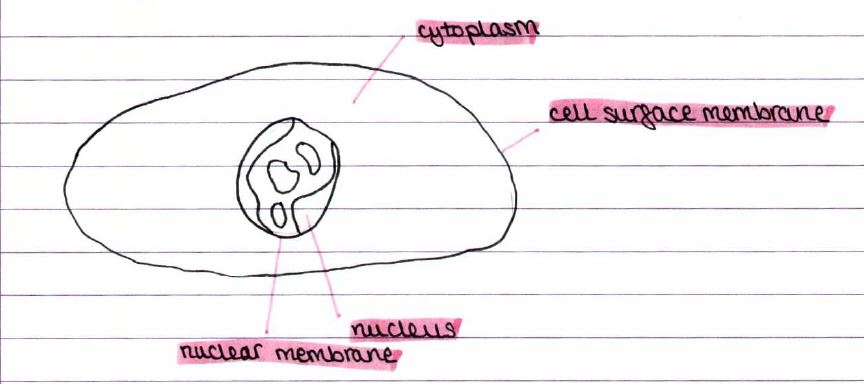 cytoplasm
cell surface membrane
nucleus
nuclear membrane